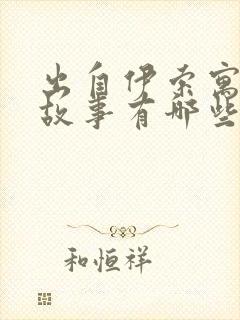 出自伊索寓
故事有哪些
和恒祥